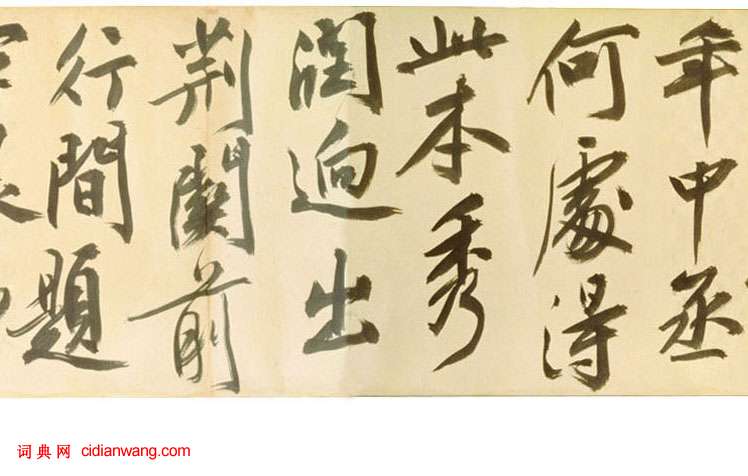 年中丞
何處得
此本秀
潤迥出
荆關前
行間題
词典网 cidianwang.com